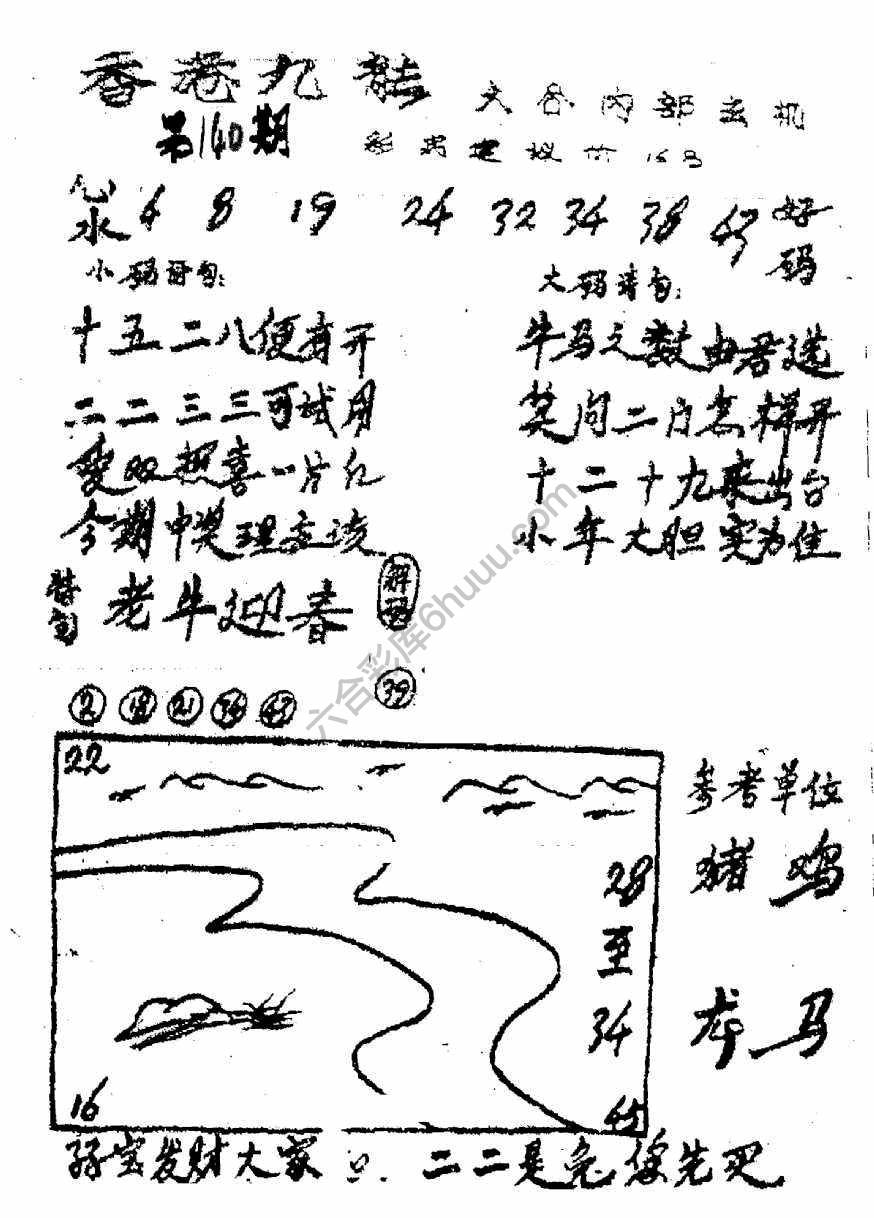 香港九龙 六合内部玄机
第140期 彩票建议价16号
心水 4 8 19 24 32 34 38 43 好码
小码诗句: 大码诗句:
十五二八便有开 牛马之数由君选
二二三三可试用 莫问二门怎样开
双照喜一片红 十二十九来出台
今期中奖理应该 小车大胆实为佳
老牛迎春 解码
2 18 21 36 43 39
22
参考单位
28 至 34
猪 鸡
龙 马
16 45
发财大家 二二是兔保先
六合彩库6huuu.com